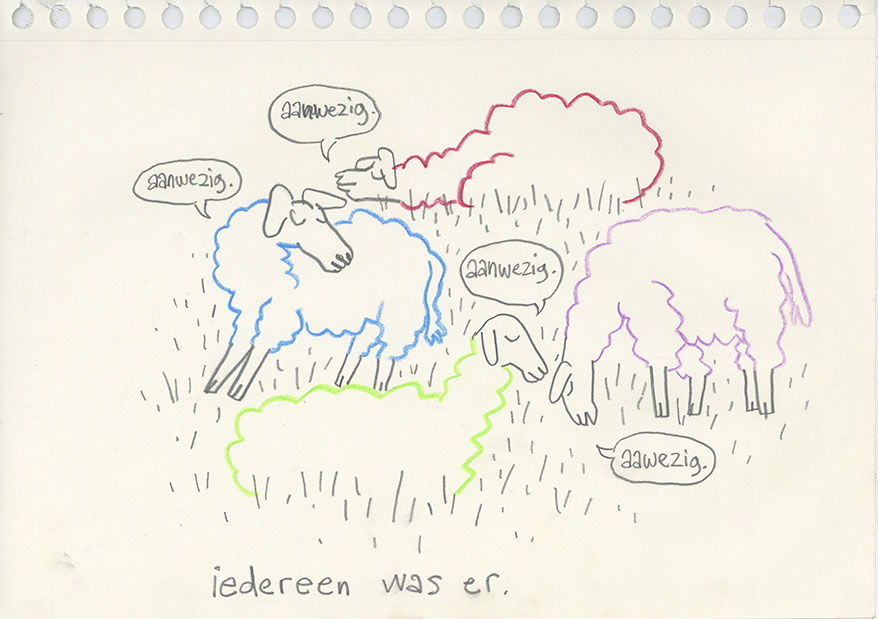 aanwezig.
aanwezig.
aanwezig.
aawezig.
iedereen was er.